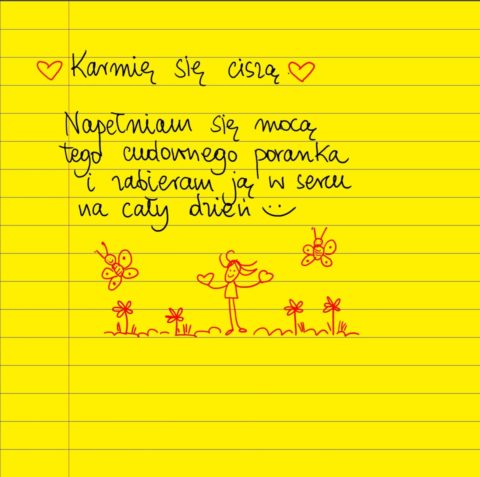 Karmię się ciszą
Napełniam się mocą
tego cudownego poranka
i zabieram ją w sercu
na cały dzień